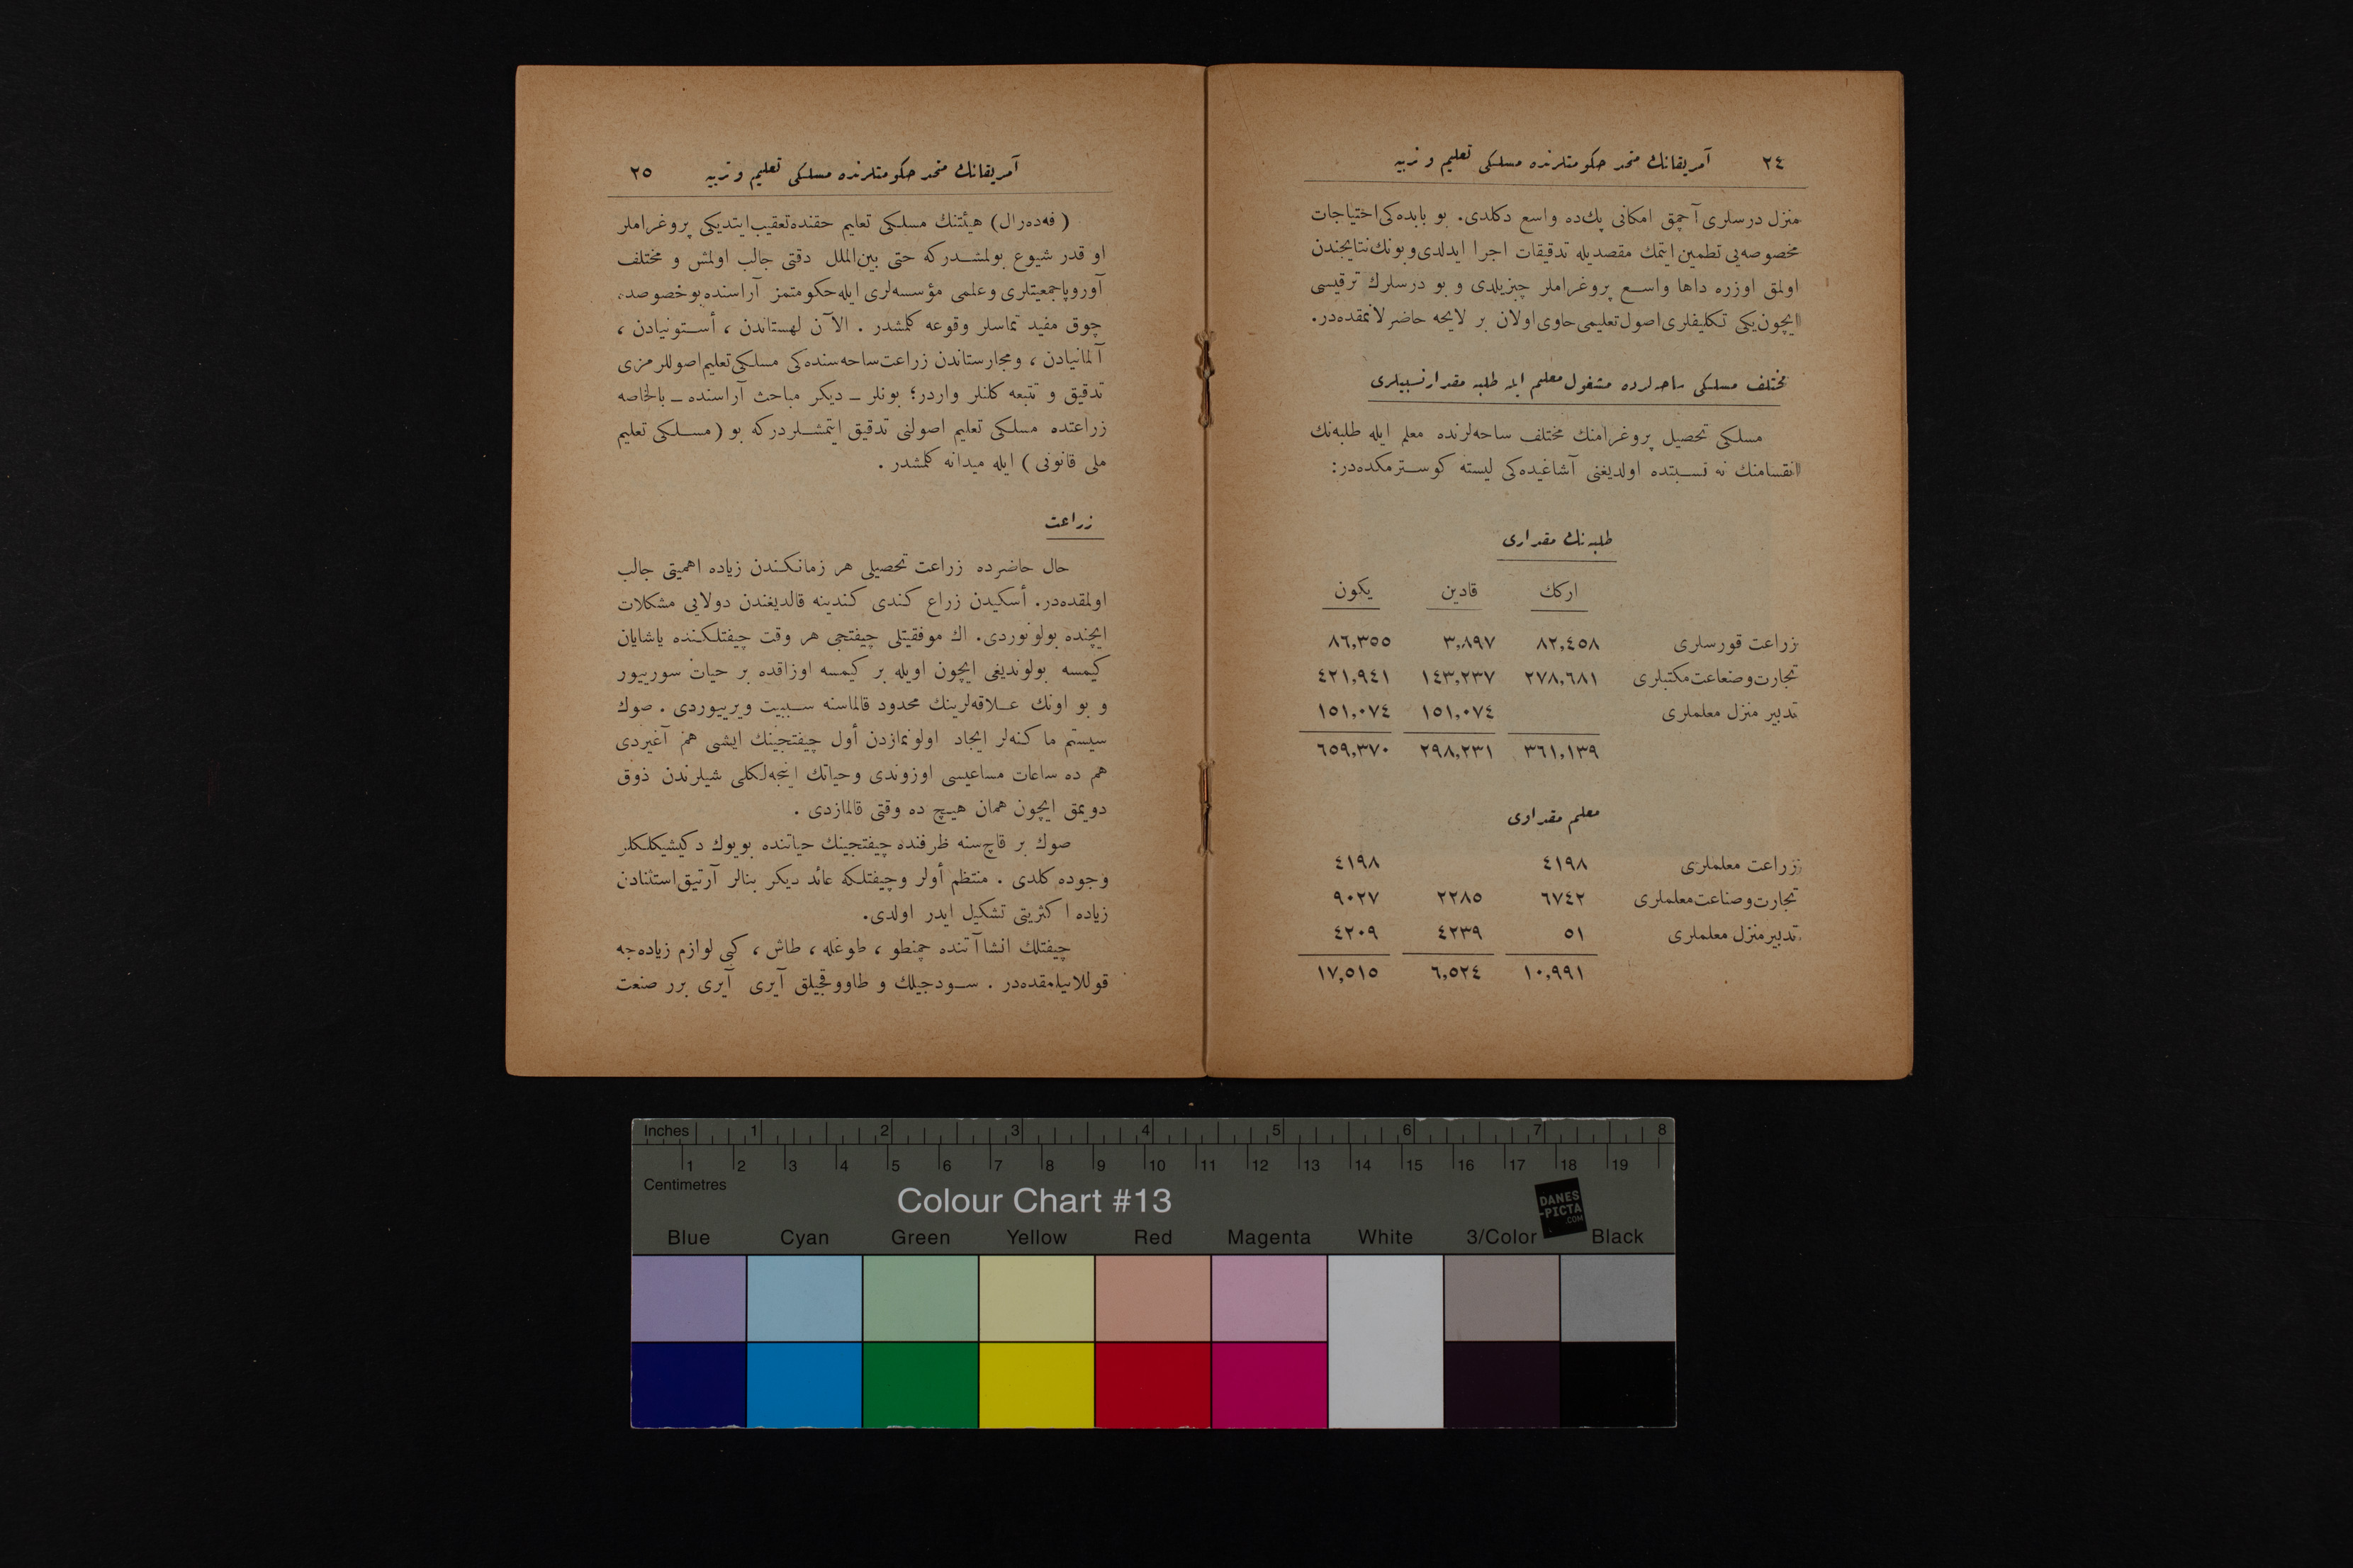 ٢٤ آمريقانك متحد حكومتلرنده مسلكى تعليم و تربيه
منزل درسلرى آچمق امكانى پك‌ده واسع دكلدى. بو بابده‌كى اختياجات
مخصوصه‌يى تطمين ايتمك مقصديله تدقيقات اجرا ايدلدى و بونك نتايجندن
اولمق اوزره داها واسع پروغراملر چيزيلدى و بو درسلرك ترقيسى
ايچون يكى تكليفلرى اصول تعليمى حاوى اولان بر لايحه حاضرلانمقده‌در.
مختلف مسلكى ساحه‌لرده مشغول معلم ايله طلبه مقدار نسبيلرى
مسلكى تحصيل پروغرامنك مختلف ساحه‌لرنده معلم ايله طلبه‌نك
انقسامنك نه نسبتده اولديغنى آشاغيده‌كى ليسته كوسترمكده‌در:
طلبه‌نك مقدارى
اركك قادين يكون
زراعت قورسلرى ٨٢,٤٥٨ ٣,٨٩٧ ٨٦,٣٥٥
تجارت و صنعاعت مكتبلرى ٢٧٨,٦٨١ ١٤٣,٢٣٧ ٤٢١,٩٤١
تدبير منزل معلملرى ١٥١,٠٧٤ ١٥١,٠٧٤
٣٦١,١٣٩ ٢٩٨,٢٣١ ٦٥٩,٣٧٠
معلم مقدارى
زراعت معلملرى ٤١٩٨ ٤١٩٨
تجارت و صناعت معلملرى ٦٧٤٢ ٢٢٨٥ ٩٠٢٧
تدبير منزل معلملرى ٥١ ٤٢٣٩ ٤٢٠٩
١٠,٩٩١ ٦,٥٢٤ ١٧,٥١٥
آمريقانك متحد حكومتلرنده مسلكى تعليم و تربيه ٢٥
(فه‌ده‌رال) هيئتنك مسلكى تعليم حقنده تعقيب ايتديكى پروغراملر
او قدر شيوع بولمشدركه حتى بين‌الملل دقتى جالب اولمش و مختلف
آوروپا جمعيتلرى و علمى مؤسسه‌لرى ايله حكومتمز آراسنده بو خصوصده
چوق مفيد تماسلر وقوعه كلمشدر. الآن لهستاندن ، أستونيادن ،
آلمانيادن ، و مجارستاندن زراعت ساحه‌سنده‌كى مسلكى تعليم اصوللرمزى
تدقيق و تتبعه كلنلر واردر؛ بونلر ــ ديكر مباحث آراسنده ــ بالخاصه
زراعتده مسلكى تعليم اصولنى تدقيق ايتمشلردركه بو (مسلكى تعليم
ملى قانونى) ايله ميدانه كلمشدر.
زراعت
حال حاضرده زراعت تحصيلى هر زمانكندن زياده اهميتى جالب
اولمقده‌در. أسكيدن زراع كندى كندينه قالديغندن دولايى مشكلات
ايچنده بولونوردى. اك موفقيتلى چيفتجى هر وقت چيفتلكنده ياشايان
كيمسه بولونديغى ايچون اويله بر كيمسه اوزاقده بر حيات سورييور
و بو اونك علاقه‌لرينك محدود قالماسنه سببيت ويرييوردى. صوك
سيستم ماكنه‌لر ايجاد اولونمازدن أول چيفتجينك ايشى هم آغيردى
هم ده ساعات مساعيسى اوزوندى و حياتك اينجه‌لكلى شيلرندن ذوق
دويمق ايچون همان هيچ ده وقتى قالمازدى.
صوك بر قاچ سنه ظرفنده چيفتجينك حياتنده بويوك دكيشيكلكلر
وجوده كلدى. منتظم أولر و چيفتلكه عائد ديكر بنالر آرتيق استثنادن
زياده اكثريتى تشكيل ايدر اولدى.
چيفتلك انشاآتنده چمنطو ، طوغله ، طاش ، كبى لوازم زياده‌جه
قوللانيلمقده‌در. سودجيلك و طاووقجيلق آيرى آيرى برر صنعت
Inches 1 2 3 4 5 6 7 8
1 2 3 4 5 6 7 8 9 10 11 12 13 14 15 16 17 18 19
Centimetres
Colour Chart #13
DANES
-PICTA
.COM
Blue Cyan Green Yellow Red Magenta White 3/Color Black